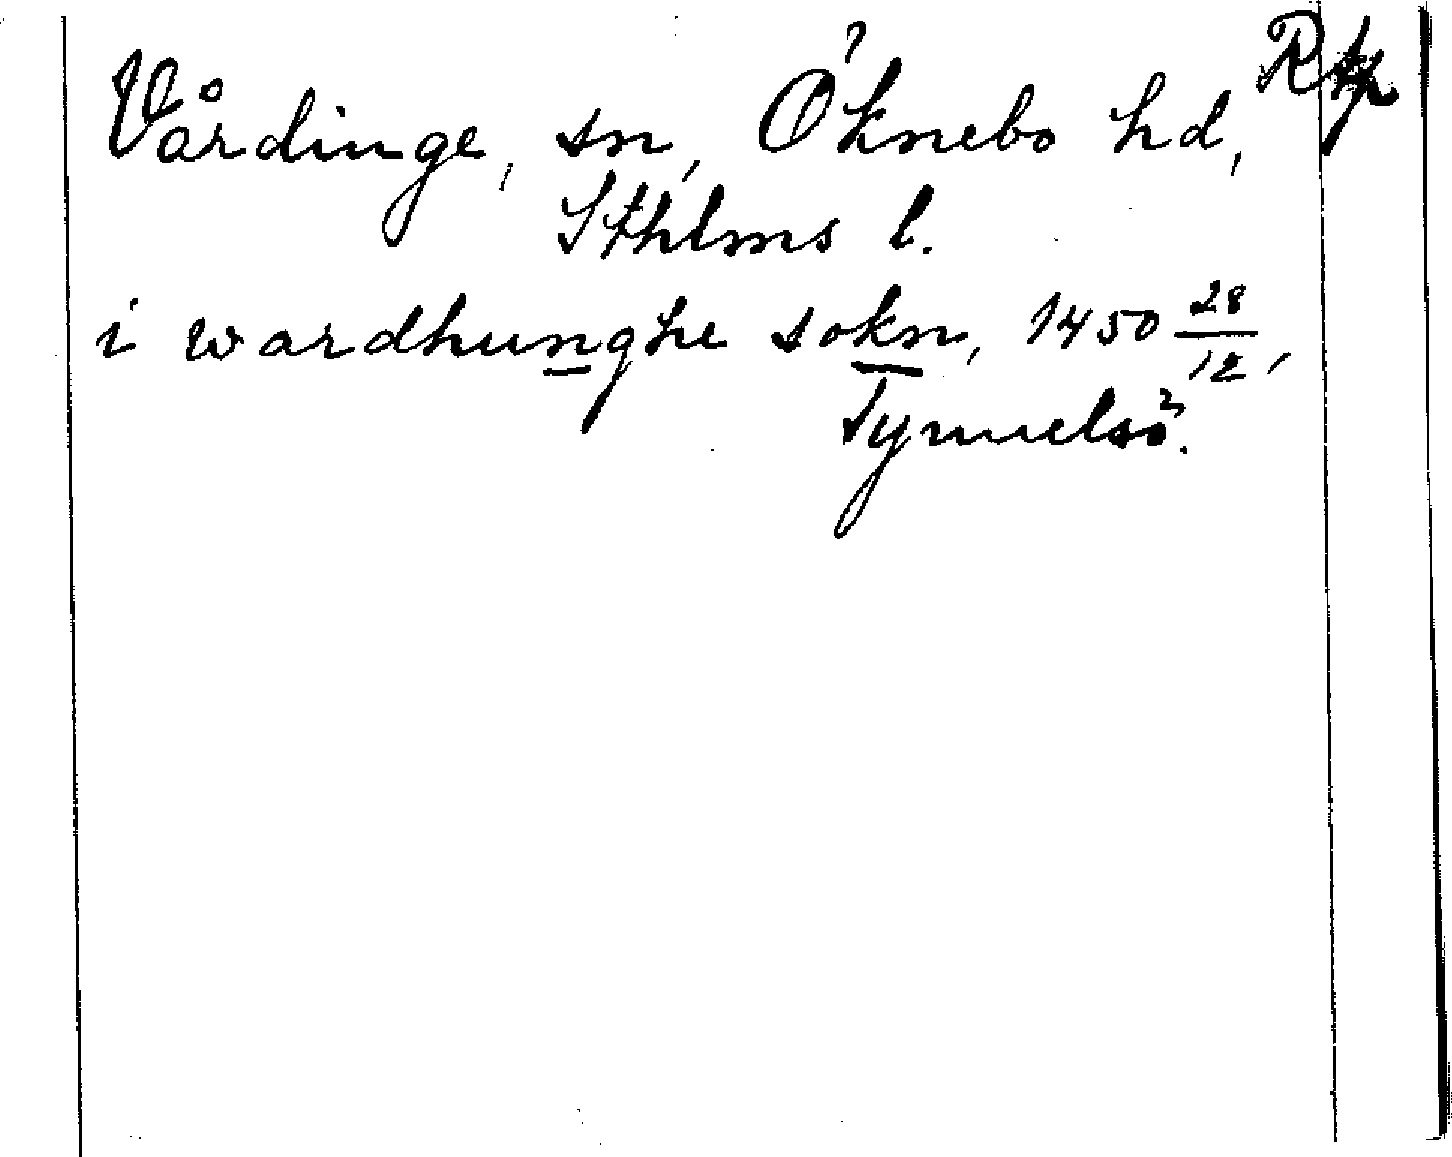 Vårdinge, sn, Öknebo hd, Rkp
Sthlms l.
i wardhunghe sokn, 1450 28/12,
Tynnelsö.